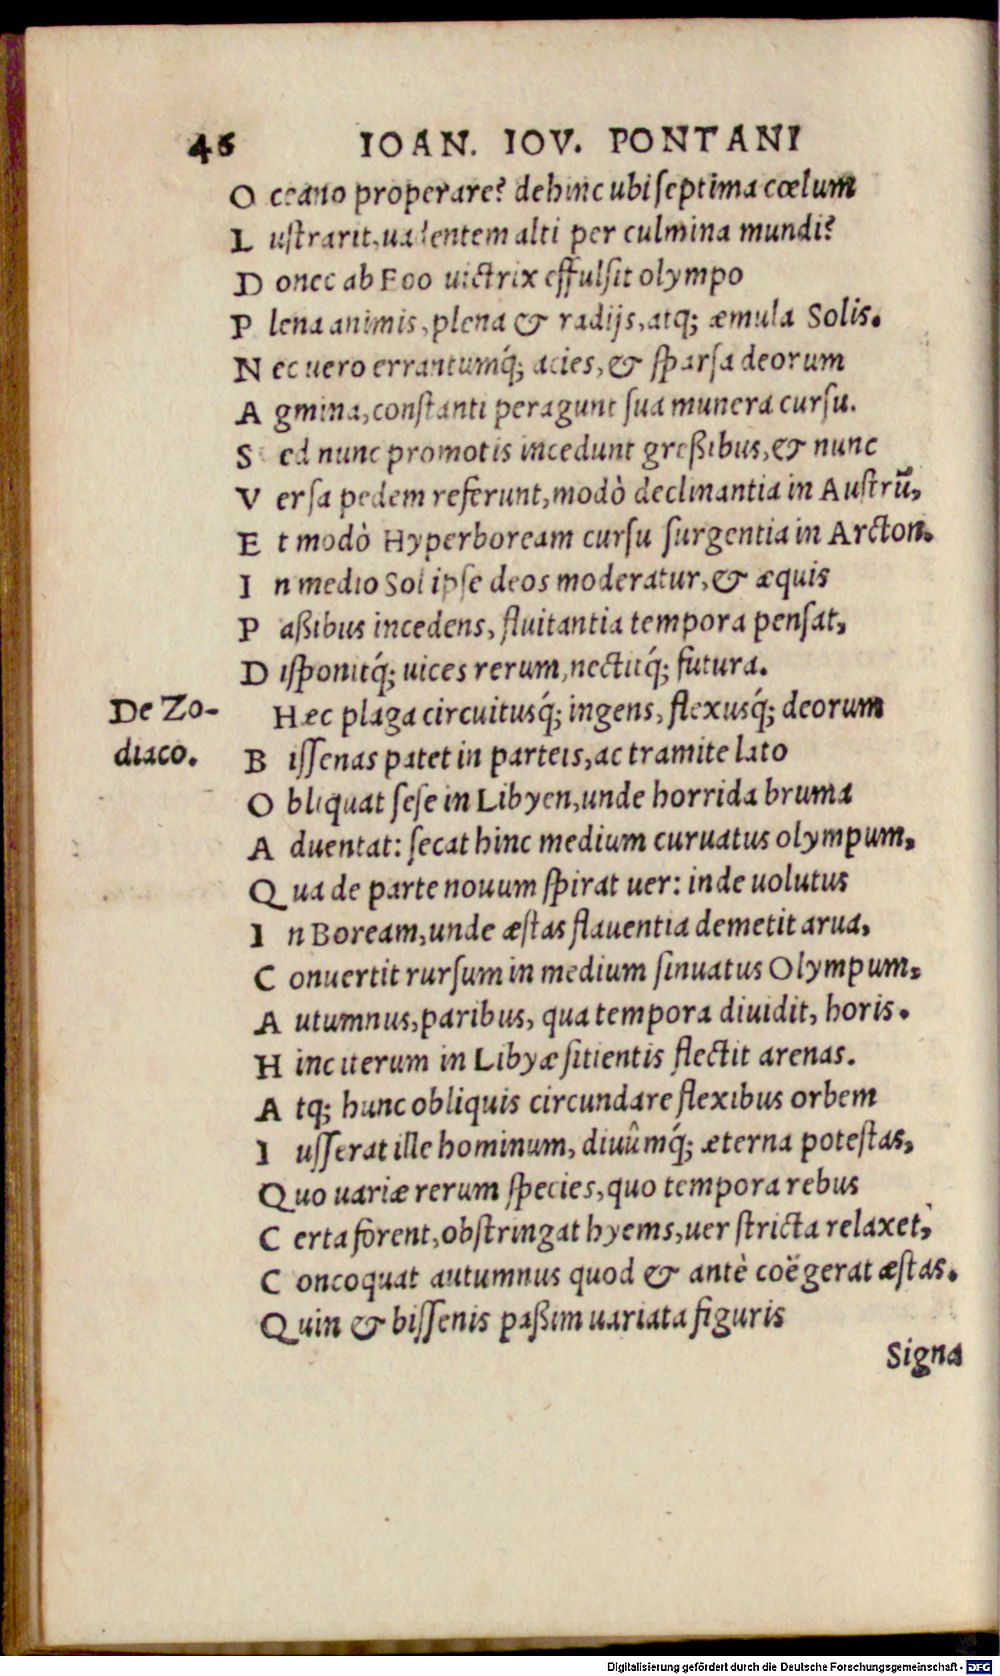 46 IOAN. IOV. PONTANI
Oceano properare? dehinc ubi septima cœlum
Lustrarit, uadentem alti per culmina mundi?
Donec ab Eoo uictrix effulsit olympo
Plena animis, plena & radijs, atq; æmula Solis.
Nec uero errantumq́; acies, & sparsa deorum
Agmina, constanti peragunt sua munera cursu.
Sed nunc promotis incedunt greßibus, & nunc
Versa pedem referunt, modò declinantia in Austrū,
Et modò Hyperboream cursu surgentia in Arcton.
In medio Sol ipse deos moderatur, & æquis
Paßibus incedens, fluitantia tempora pensat,
Disponitq́; uices rerum, nectitq́; futura.
De Zo-
diaco.
Hæc plaga circuitusq́; ingens, flexusq́; deorum
Bissenas patet in parteis, ac tramite lato
Obliquat sese in Libyen, unde horrida bruma
Aduentat: secat hinc medium curuatus olympum,
Qua de parte nouum spirat uer: inde uolutus
In Boream, unde æstas flauentia demetit arua,
Conuertit rursum in medium sinuatus Olympum,
Autumnus, paribus, qua tempora diuidit, horis.
Hinc iterum in Libyæ sitientis flectit arenas.
Atq; hunc obliquis circundare flexibus orbem
Iusserat ille hominum, diuûmq́; æterna potestas,
Quo uariæ rerum species, quo tempora rebus
Certa forent, obstringat hyems, uer stricta relaxet,
Concoquat autumnus quod & antè coëgerat æstas.
Quin & bissenis paßim uariata figuris
Signa
Digitalisierung gefördert durch die Deutsche Forschungsgemeinschaft - DFG